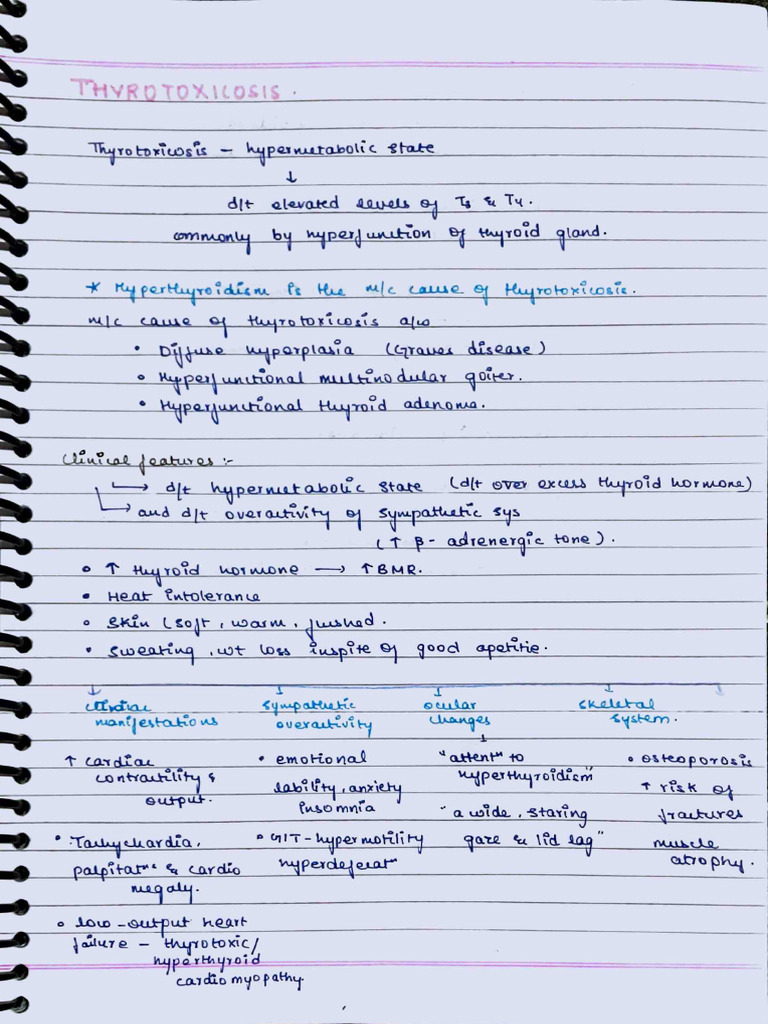 THYROTOXICOSIS.
Thyrotoxicosis – hypermetabolic state
↓
d/t elevated levels of T3 & T4.
commonly by hyperfunction of thyroid gland.
* Hyperthyroidism is the m/c cause of thyrotoxicosis.
m/c cause of thyrotoxicosis a/w
• Diffuse hyperplasia (Graves disease)
• Hyperfunctional multinodular goiter.
• Hyperfunctional thyroid adenoma.
Clinical features :-
→ d/t hypermetabolic state (d/t over excess thyroid hormone)
→ and d/t overactivity of sympathetic sys
(↑ β- adrenergic tone).
• ↑ thyroid hormone → ↑BMR.
• Heat intolerance
• Skin (soft, warm, flushed.
• Sweating, wt loss inspite of good apetitie.
Cardiac
manifestations
↑ cardiac
contractility &
output.
• Tachycardia,
palpitatⁿˢ & cardio
megaly.
• low-output heart
failure – thyrotoxic/
hyperthyroid
cardiomyopathy
Sympathetic
overactivity
• emotional
lability, anxiety
insomnia
• GIT-hypermotility
hyperdefecatⁿ
ocular
changes
↓
"attentⁿ to
hyperthyroidism"
"a wide, staring
gaze & lid lag"
skeletal
system.
• osteoporosis
↑ risk of
fractures
muscle
atrophy.